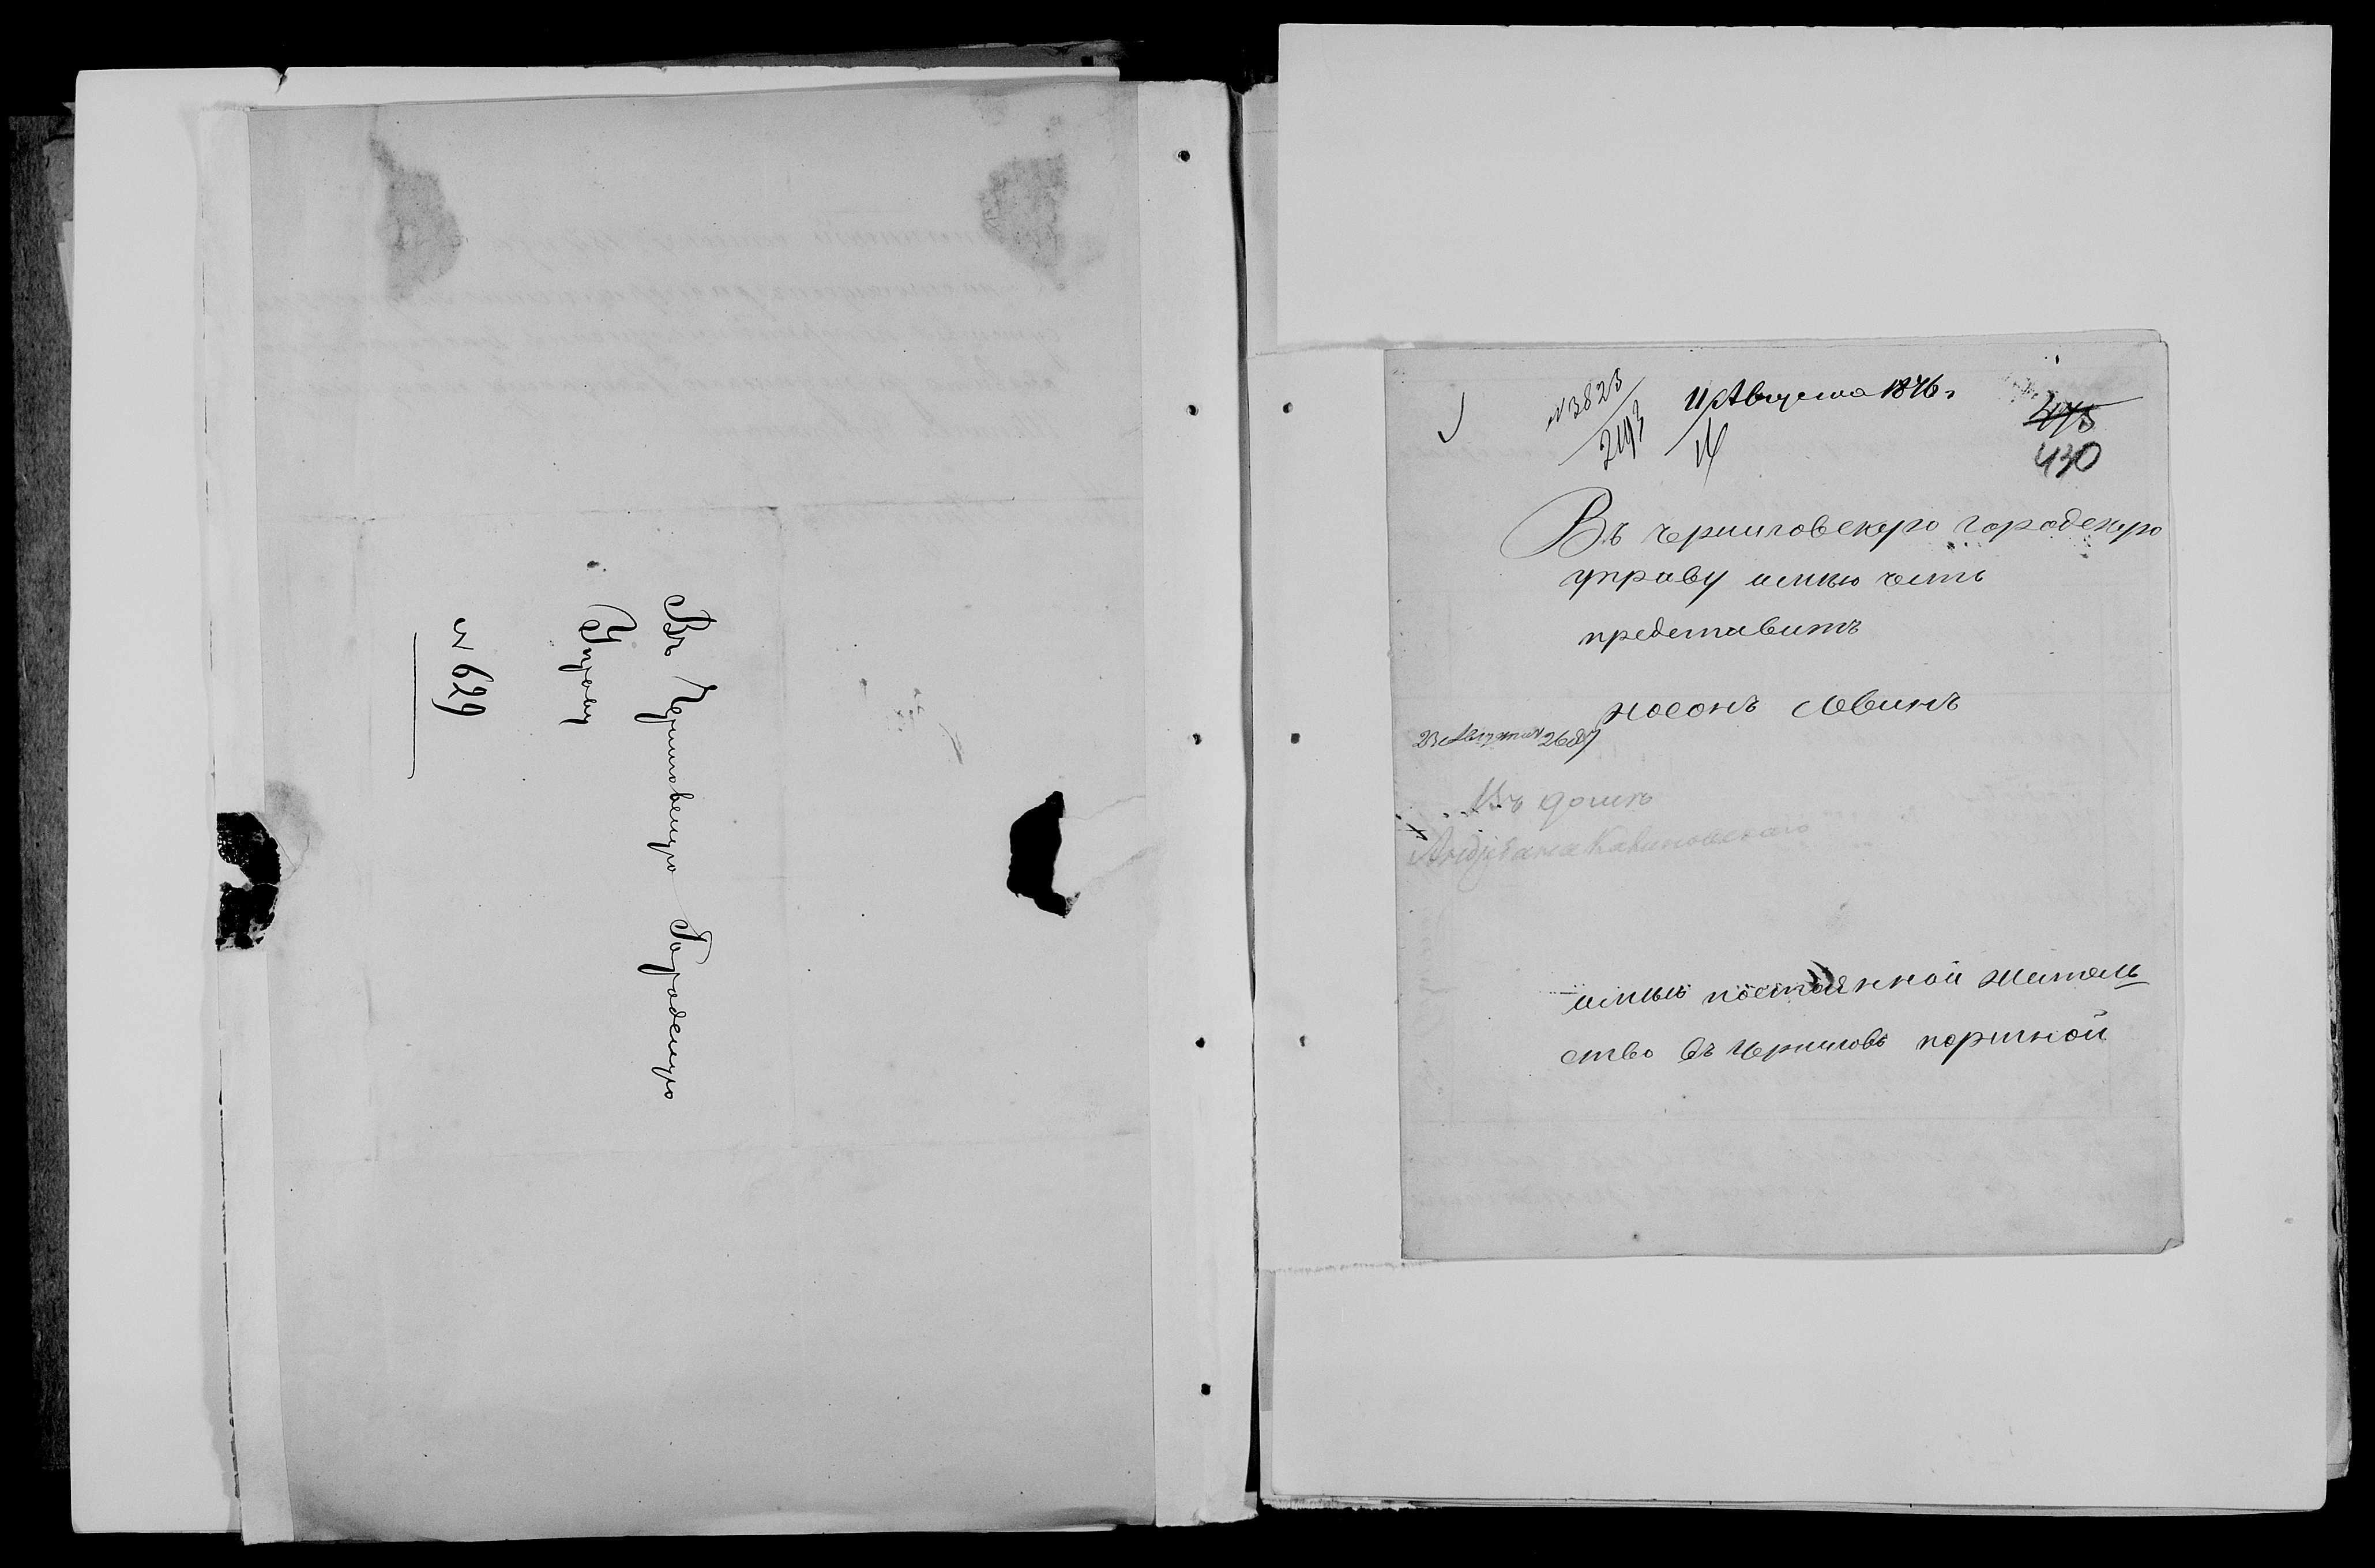 Въ Черниговскую Городскую
Управу
№ 629
№ 3823
2193
11 Августа 1876 г.
14
475
430
Въ черниговскую городскую
управу имѣю честь
представить
носонъ Левинъ
23 Августа № 2687
Въ домѣ
имѣю постоянной житель
ство въ Черниговѣ портной